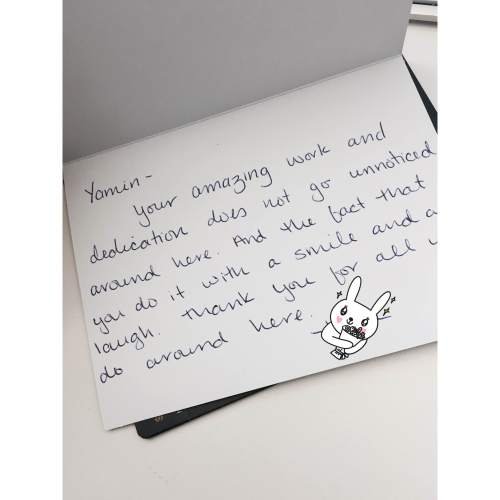 Yamin-
your amazing work and
dedication does not go unnoticed
around here. And the fact that
you do it with a smile and a
laugh. Thank you for all
do around here.